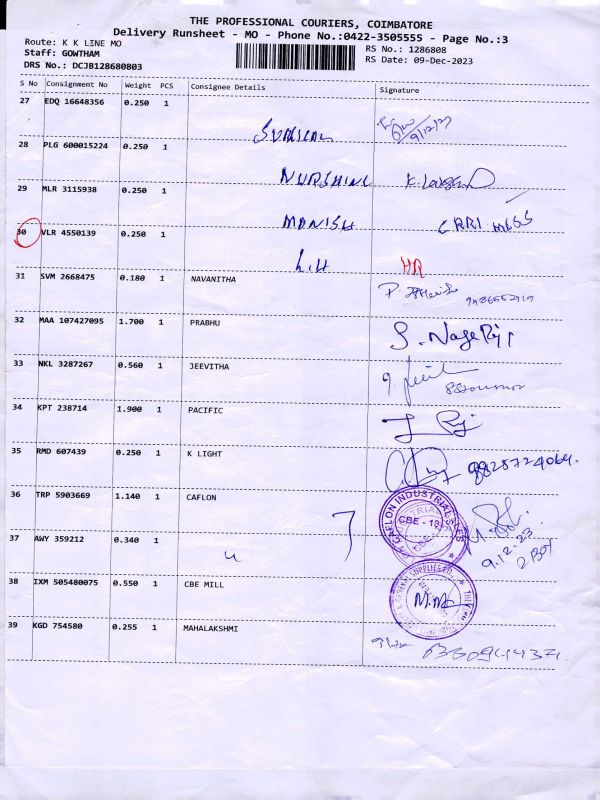 THE PROFESSIONAL COURIERS, COIMBATORE
Delivery Runsheet - MO - Phone No.:0422-3505555 - Page No.:3
Route: K K LINE MO
Staff: GOWTHAM
DRS No.: DCJB128680803
RS No.: 1286808
RS Date: 09-Dec-2023
S No Consignment No Weight PCS Consignee Details Signature
27 EDQ 16648356 0.250 1 SURGICAL 9/12/23
28 PLG 600015224 0.250 1 NURSHING
29 MLR 3115938 0.250 1 MANISH
30 VLR 4550139 0.250 1 L.H HR
31 SVM 2668475 0.180 1 NAVANITHA
32 MAA 107427095 1.700 1 PRABHU S. Nage Raj
33 NKL 3287267 0.560 1 JEEVITHA
34 KPT 238714 1.900 1 PACIFIC
35 RMD 607439 0.250 1 K LIGHT 9825724064.
36 TRP 5903669 1.140 1 CAFLON CAFLON INDUSTRIAL
37 AWY 359212 0.340 1 9.12.23
38 IXM 505480075 0.550 1 CBE MILL
39 KGD 754580 0.255 1 MAHALAKSHMI